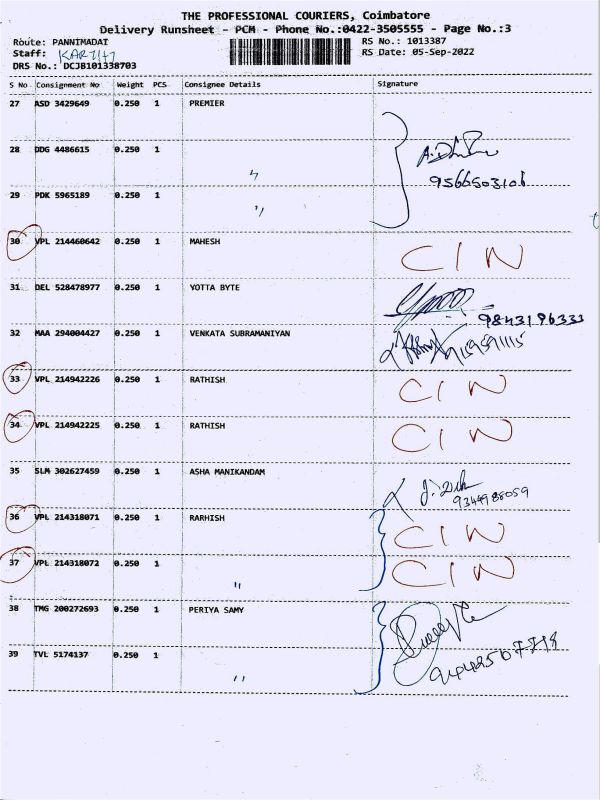 THE PROFESSIONAL COURIERS, Coimbatore
Delivery Runsheet - PCM - Phone No.:0422-3505555 - Page No.:3
Route: PANNIMADAI RS No.: 1013387
Staff: KARTHI RS Date: 05-Sep-2022
DRS No.: DCJB101338703
S No Consignment No Weight PCS Consignee Details Signature
27 ASD 3429649 0.250 1 PREMIER
28 DDG 4486615 0.250 1 〃
9566503106
29 PDK 5965189 0.250 1 〃
30 VPL 214460642 0.250 1 MAHESH CIN
31 DEL 528478977 0.250 1 YOTTA BYTE
9843196333
32 MAA 294004427 0.250 1 VENKATA SUBRAMANIYAN
33 VPL 214942226 0.250 1 RATHISH CIN
34 VPL 214942225 0.250 1 RATHISH CIN
35 SLM 302627459 0.250 1 ASHA MANIKANDAM
9344988059
36 VPL 214318071 0.250 1 RARHISH CIN
37 VPL 214318072 0.250 1 〃 CIN
38 TMG 200272693 0.250 1 PERIYA SAMY
39 TVL 5174137 0.250 1 〃